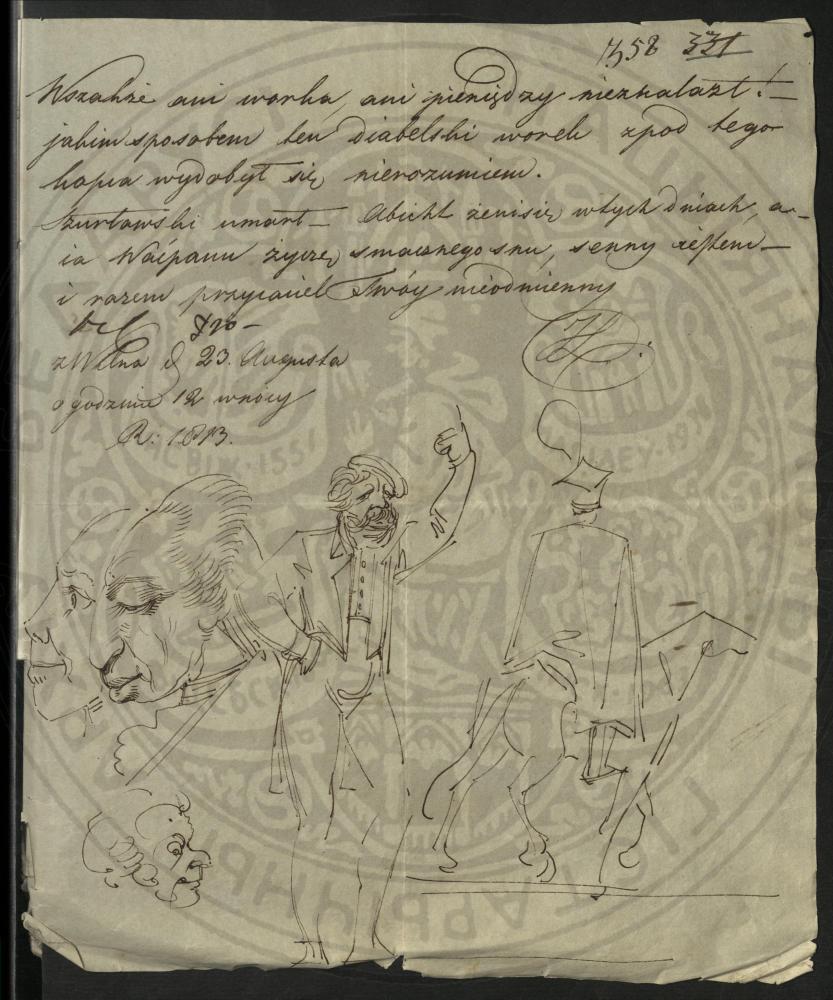 358 331
Wszakże ani worka, ani pieniędzy nieznalazł! –
jakim sposobem ten diabelski worek zpod tego
kopca wydobył się nierozumiem.
umarł – Abicht żenisię wtych dniach, a –
ia Waćpanu życzę smacznego snu, senny iestem –
i razem przyiaciel Twóy nieodmienny
z Wilna d 23. Augusta
o godzinie 12 wnocy
R: 1813.